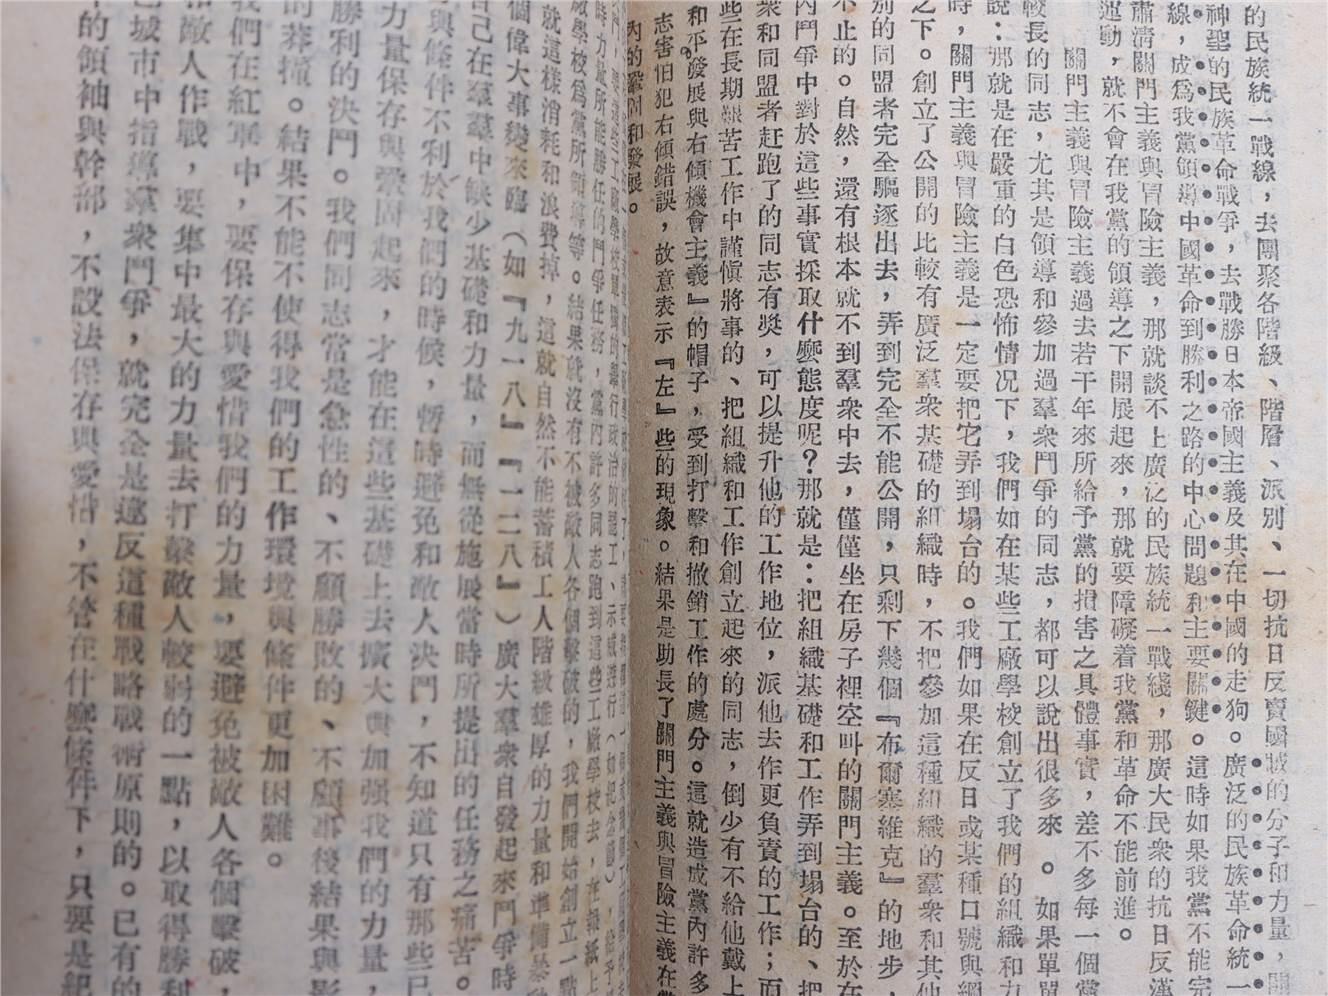 的民族統一戰線，去團聚各階級、階層、派別、一切抗日反賣國賊的分子和力量，開
神聖的民族革命戰爭，去戰勝日本帝國主義及其在中國的走狗。廣泛的民族革命統一
線，成爲我黨領導中國革命到勝利之路的中心問題和主要關鍵。這時如果我黨不能完
肅清關門主義與冒險主義，那就談不上廣泛的民族統一戰綫，那廣大民衆的抗日反漢
運動，就不會在我黨的領導之下開展起來，那就要障礙着我黨和革命不能前進。
關門主義與冒險主義過去若干年來所給予黨的損害之具體事實，差不多每一個黨
較長的同志，尤其是領導和參加過羣衆鬥爭的同志，都可以說出很多來。如果單單
說：那就是在嚴重的白色恐怖情況下，我們如在某些工廠學校創立了我們的組織和力
時，關門主義與冒險主義是一定要把它弄到塌台的。我們如果在反日或某種口號與綱
之下。創立了公開的比較有廣泛羣衆基礎的組織時，不把參加這種組織的羣衆和其他
別的同盟者完全驅逐出去，弄到完全不能公開，只剩下幾個『布爾塞維克』的地步，
不止的。自然，還有根本就不到羣衆中去，僅僅坐在房子裡空叫的關門主義。至於在
內鬥爭中對於這些事實採取什麼態度呢？那就是：把組織基礎和工作弄到塌台的、把
衆和同盟者赶跑了的同志有獎，可以提升他的工作地位，派他去作更負責的工作；而
些在長期艱苦工作中謹愼將事的、把組織和工作創立起來的同志，倒少有不給他戴上
和平發展與右傾機會主義』的帽子，受到打擊和撤銷工作的處分。這就造成黨內許多
志害怕犯右傾錯誤，故意表示『左』些的現象。結果是助長了關門主義與冒險主義在黨
內的鞏固和發展。
時力量所能勝任的鬥爭任務，黨內許多同志跑到這些工廠學校去，在報紙上
廠學校爲黨所領導等。結果就沒有不被敵人各個擊破的，我們開始創立一點
就這樣消耗和浪費掉，這就自然不能蓄積工人階級雄厚的力量和準備暴動
個偉大事變來臨（如『九一八』『一二八』）廣大羣衆自發起來鬥爭時
自己在羣衆中缺少基礎和力量，而無從施展當時所提出的任務之痛苦。
與條件不利於我們的時候，暫時避免和敵人決鬥，不知道只有那些已
力量保存與鞏固起來，才能在這些基礎上去擴大與加强我們的力量，
勝利的決鬥。我們同志常是急性的、不顧勝敗的、不顧事後結果與影
的莽撞。結果不能不使得我們的工作環境與條件更加困難。
我們在紅軍中，要保存與愛惜我們的力量，要避免被敵人各個擊破，
和敵人作戰，要集中最大的力量去打擊敵人較弱的一點，以取得勝利
已城市中指導羣衆鬥爭，就完全是違反這種戰略戰術原則的。已有的
的領袖與幹部，不設法保存與愛惜，不管在什麼條件下，只要是紀